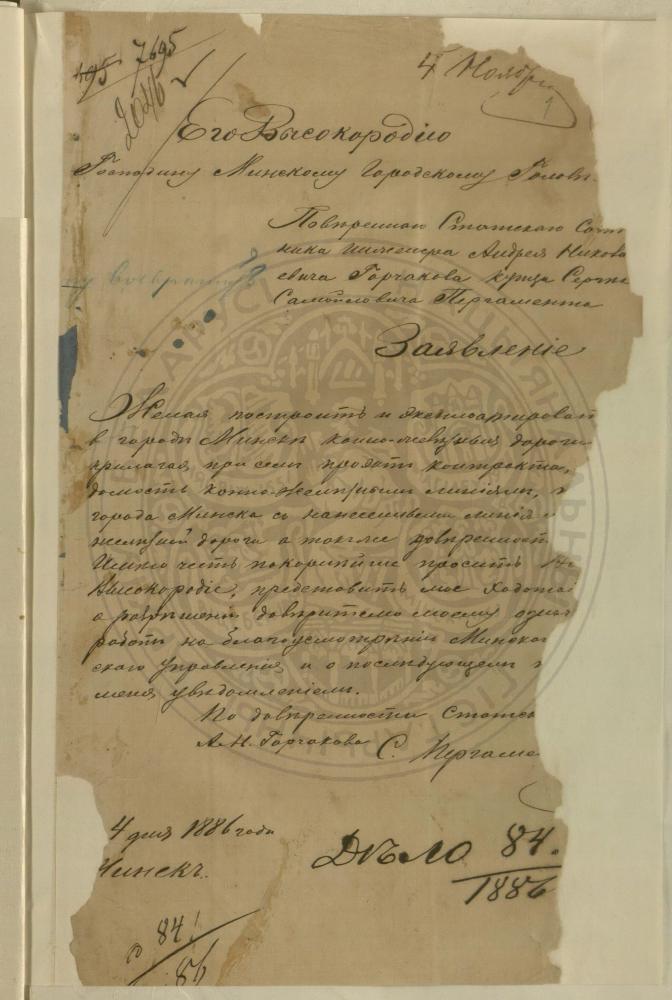 495 7695
2046
4 Ноября
Его Высокородію
Господину Минскому Городскому Головѣ
Повѣреннаго Статскаго Совѣт
ника Инженера Андрея Никола
евича Горчакова купца Сергѣя
Самойловича Пергамента
Заявленіе
Желая построить и эксплоатироват
в городѣ Минскѣ конно-желѣзныя дороги
прилагая при семъ проэктъ контракта,
домость конно-желѣзнымъ линіямъ,
города Минска съ нанесенными линія
желѣзной дороги а также довѣренность
Имѣю честь покорнѣйше просить
Высокородіе, представить мое ходатай
о разрѣшеніи довѣрителю моему
работъ на благоусмотрѣніе Минског
скаго Управленія, и о послѣдующемъ
меня увѣдомленіемъ.
По довѣренности Статск
А. Н. Горчакова С. Пергаме
4 дня 1886 года
Минскъ.
Дѣло 84.
1886
84
86